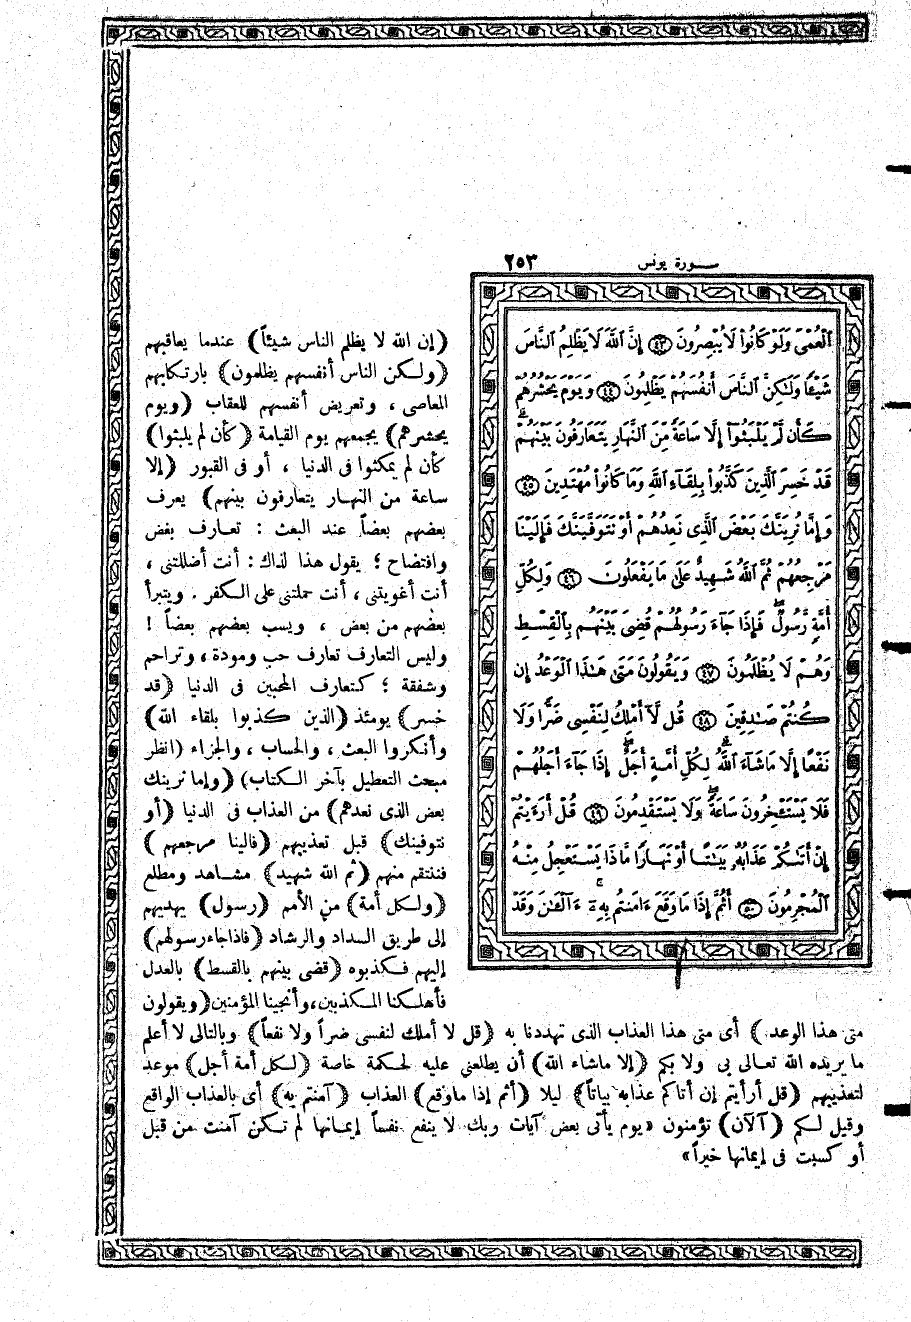 سورة يونس ٢٥٣
ٱلْعُمْىَ وَلَوْ كَانُوا۟ لَا يُبْصِرُونَ ﴿٤٣﴾ إِنَّ ٱللَّهَ لَا يَظْلِمُ ٱلنَّاسَ
شَيْـًٔا وَلَـٰكِنَّ ٱلنَّاسَ أَنفُسَهُمْ يَظْلِمُونَ ﴿٤٤﴾ وَيَوْمَ يَحْشُرُهُمْ
كَأَن لَّمْ يَلْبَثُوٓا۟ إِلَّا سَاعَةً مِّنَ ٱلنَّهَارِ يَتَعَارَفُونَ بَيْنَهُمْ ۚ
قَدْ خَسِرَ ٱلَّذِينَ كَذَّبُوا۟ بِلِقَآءِ ٱللَّهِ وَمَا كَانُوا۟ مُهْتَدِينَ ﴿٤٥﴾
وَإِمَّا نُرِيَنَّكَ بَعْضَ ٱلَّذِى نَعِدُهُمْ أَوْ نَتَوَفَّيَنَّكَ فَإِلَيْنَا
مَرْجِعُهُمْ ثُمَّ ٱللَّهُ شَهِيدٌ عَلَىٰ مَا يَفْعَلُونَ ﴿٤٦﴾ وَلِكُلِّ
أُمَّةٍ رَّسُولٌ ۖ فَإِذَا جَآءَ رَسُولُهُمْ قُضِىَ بَيْنَهُم بِٱلْقِسْطِ
وَهُمْ لَا يُظْلَمُونَ ﴿٤٧﴾ وَيَقُولُونَ مَتَىٰ هَـٰذَا ٱلْوَعْدُ إِن
كُنتُمْ صَـٰدِقِينَ ﴿٤٨﴾ قُل لَّآ أَمْلِكُ لِنَفْسِى ضَرًّا وَلَا
نَفْعًا إِلَّا مَا شَآءَ ٱللَّهُ ۗ لِكُلِّ أُمَّةٍ أَجَلٌ ۚ إِذَا جَآءَ أَجَلُهُمْ
فَلَا يَسْتَـْٔخِرُونَ سَاعَةً ۖ وَلَا يَسْتَقْدِمُونَ ﴿٤٩﴾ قُلْ أَرَءَيْتُمْ
إِنْ أَتَىٰكُمْ عَذَابُهُۥ بَيَـٰتًا أَوْ نَهَارًا مَّاذَا يَسْتَعْجِلُ مِنْهُ
ٱلْمُجْرِمُونَ ﴿٥٠﴾ أَثُمَّ إِذَا مَا وَقَعَ ءَامَنتُم بِهِۦٓ ۚ ءَآلْـَٔـٰنَ وَقَدْ
(إن الله لا يظلم الناس شيئاً) عندما يعاقبهم
(ولكن الناس أنفسهم يظلمون) بارتكابهم
المعاصى ، وتعريض أنفسهم للعقاب (ويوم
يحشرهم) يجمعهم يوم القيامة (كأن لم يلبثوا)
كأن لم يمكثوا فى الدنيا ، أو فى القبور (إلا
ساعة من النهار يتعارفون بينهم) يعرف
بعضهم بعضاً عند البعث : تعارف بغض
وافتضاح ؛ يقول هذا لذاك : أنت أضللتنى ،
أنت أغويتنى ، أنت حملتنى على الكفر . ويتبرأ
بعضهم من بعض ، ويسب بعضهم بعضاً !
وليس التعارف تعارف حب ومودة ، وتراحم
وشفقة ؛ كتعارف المحبين فى الدنيا (قد
خسر) يومئذ (الذين كذبوا بلقاء الله)
وأنكروا البعث ، والحساب ، والجزاء (انظر
مبحث التعطيل بآخر الكتاب) (وإما نرينك
بعض الذى نعدهم) من العذاب فى الدنيا (أو
نتوفينك) قبل تعذيبهم (فالينا مرجعهم)
فننتقم منهم (ثم الله شهيد) مشاهد ومطلع
(ولكل أمة) من الأمم (رسول) يهديهم
إلى طريق السداد والرشاد (فاذا جاء رسولهم)
إليهم فكذبوه (قضى بينهم بالقسط) بالعدل
فأهلكنا المكذبين ، وأنجينا المؤمنين (ويقولون
متى هذا الوعد) أى متى هذا العذاب الذى تهددنا به (قل لا أملك لنفسى ضراً ولا نفعاً) وبالتالى لا أعلم
ما يريده الله تعالى بى ولا بكم (إلا ماشاء الله) أن يطلعنى عليه لحكمة خاصة (لكل أمة أجل) موعد
لتعذيبهم (قل أرأيتم إن أتاكم عذابه بياتاً) ليلا (أثم إذا ماوقع) العذاب (آمنتم به) أى بالعذاب الواقع
وقيل لكم (آلآن) تؤمنون «يوم يأتى بعض آيات ربك لا ينفع نفساً إيمانها لم تكن آمنت من قبل
أو كسبت فى إيمانها خيراً»